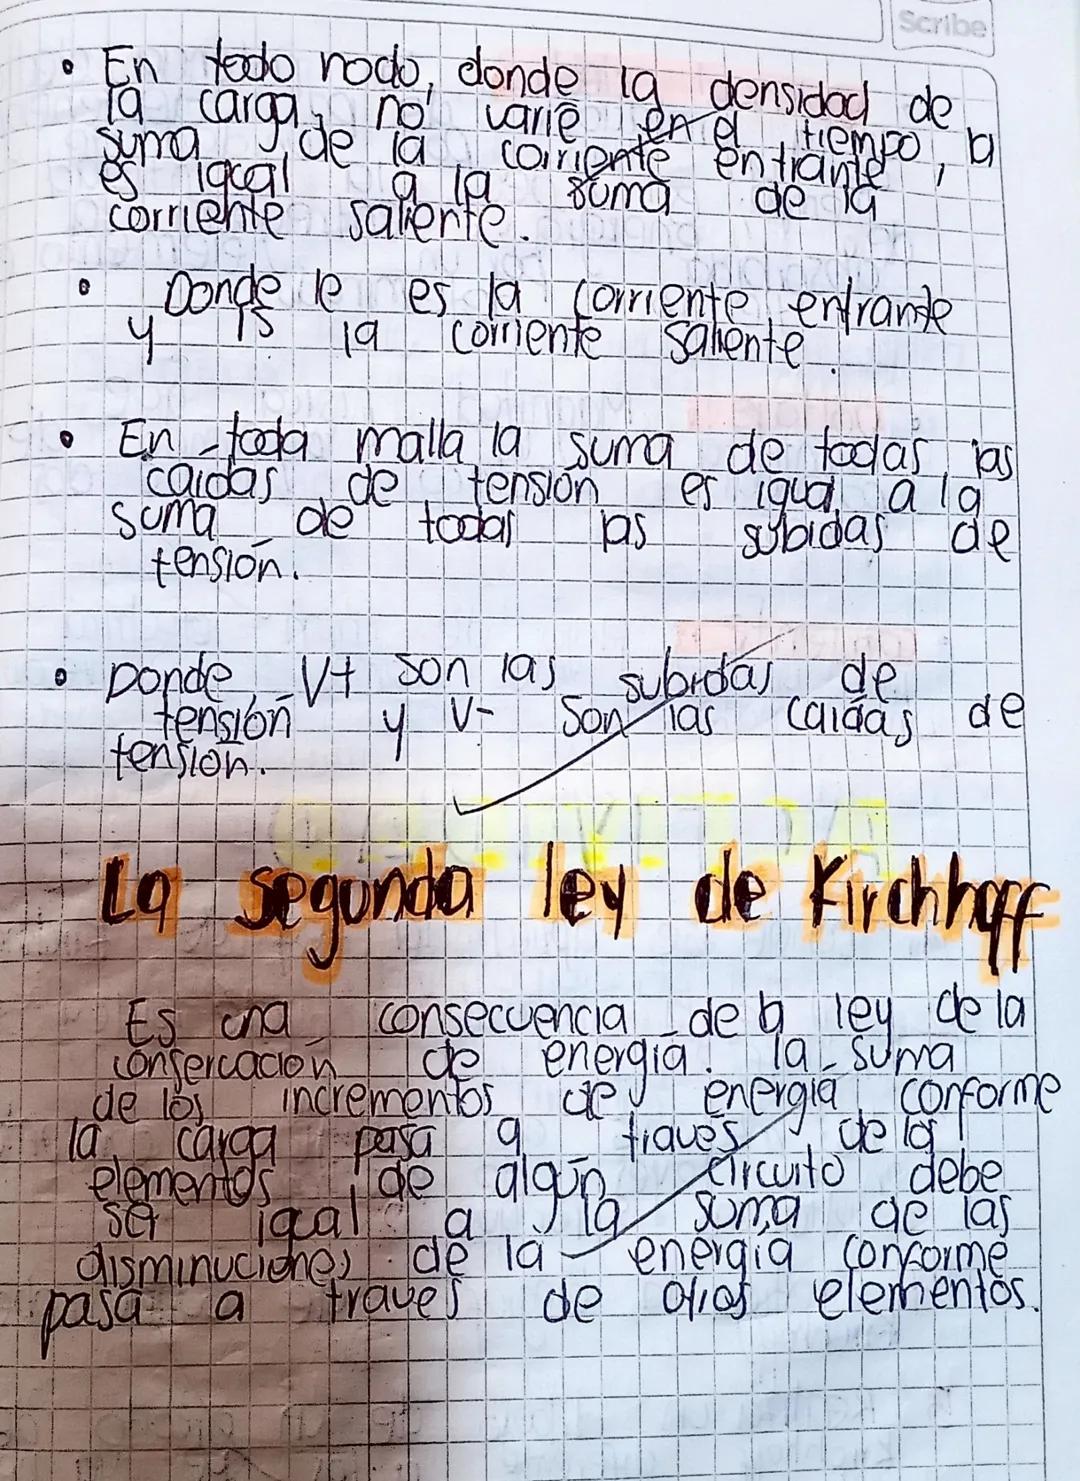 Scribe
• En todo nodo, donde la densidad de
la carga no varie en el tiempo, la
suma de la corriente entrante,
es igual a la suma de la
corriente saliente.
• Donde Ie es la corriente entrante
y Is la corriente saliente.
• En toda malla la suma de todas las
caidas de tensión es igual a la
suma de todas las subidas de
tensión.
• Donde V+ son las subidas de
tensión y V- son las caidas de
tensión.
La segunda ley de Kirchhoff
Es una consecuencia de la ley de la
consercación de energía. la suma
de los incrementos de energía conforme
la carga pasa a traves de los
elementos de algún circuito debe
ser igual a la suma de las
disminuciones de la energía conforme
pasa a traves de otros elementos.